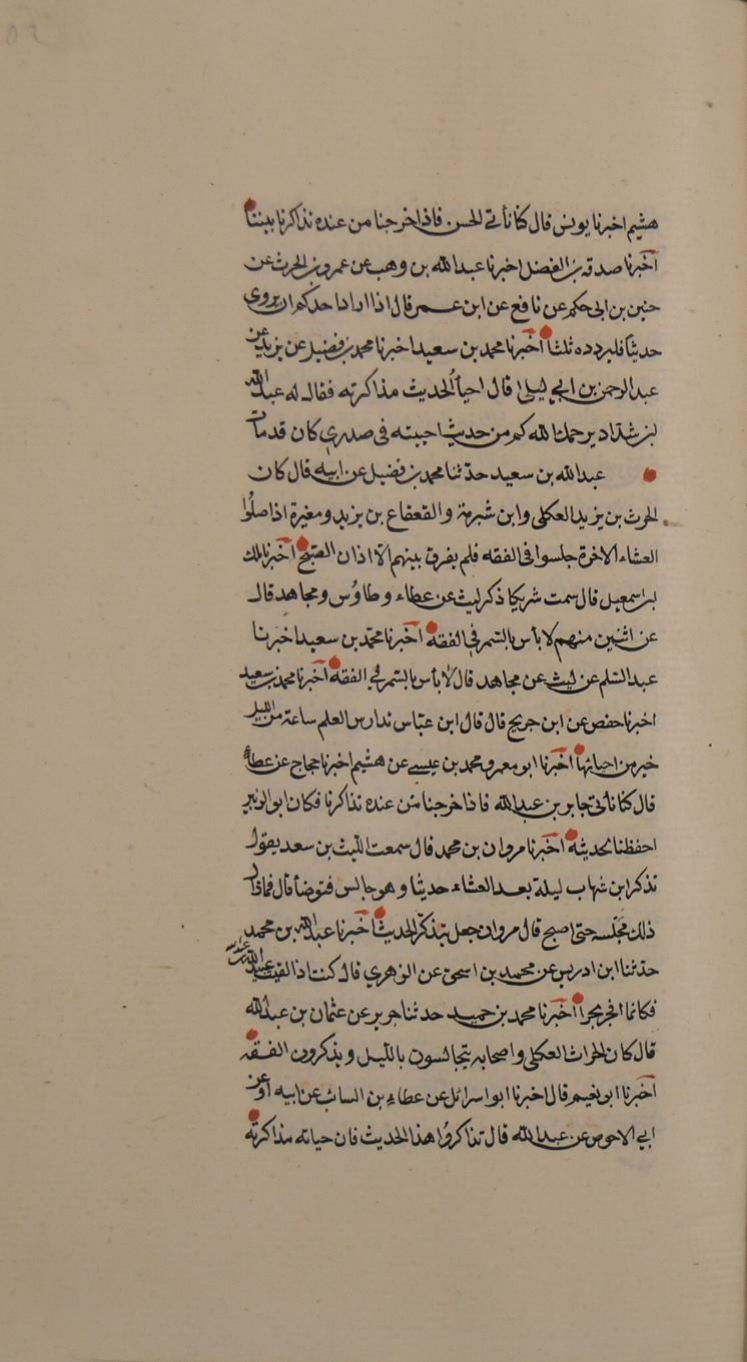 هشيم اخبرنا يونس قال كنا نأتي الحسن فاذا خرجنا من عنده تذاكرنا بيننا
اخبرنا صدقه بن الفضل اخبرنا عبد الله بن وهب عن عمرو بن الحرث عن
حنين بن ابى حكيم عن نافع عن ابن عمر قال اذا اراد احدكم ان يروى
حديثا فليردده ثلثا اخبرنا محمد بن سعيد اخبرنا محمد بن فضيل عن يزيد عن
عبد الرحمن بن ابي ليلى قال احياء الحديث مذاكرته فقال له عبد الله
بن شداد يرحمك الله كم من حديث احييته فى صدرى كان قد مات
عبد الله بن سعيد حدثنا محمد بن فضيل عن ابيه قال كان
الحرث بن يزيد العكلى وابن شبرمة والقعقاع بن يزيد ومغيرة اذا صلوا
العشاء الاخرة جلسوا فى الفقه فلم يفرق بينهم الا اذان الصبح اخبرنا ملك
بن اسمعيل قال سمت شريكا ذكر ليث عن عطاء وطاوس ومجاهد قال
عن اثنين منهم لا بأس بالسمر في الفقه اخبرنا محمد بن سعيد اخبرنا
عبد السلم عن ليث عن مجاهد قال لا بأس بالسمر في الفقه اخبرنا محمد بن سعيد
اخبرنا حفص عن ابن جريج قال قال ابن عباس تدارس العلم ساعة من الليل
خير من احيائها اخبرنا ابو معمر ومحمد بن عيسى عن هشيم اخبرنا حجاج عن عطاء
قال كنا نأتى جابر بن عبد الله فاذا خرجنا من عنده تذاكرنا فكان ابو الزبير
احفظنا لحديثه اخبرنا مروان بن محمد قال سمعت الليث بن سعد يقول
تذكر ابن شهاب ليلة بعد العشاء حديثا وهو جالس فتوضأ قال فما زال
ذلك مجلسه حتى اصبح قال مروان جعل يتذكر الحديث اخبرنا عبد الله بن محمد
حدثنا ابن ادريس عن محمد بن اسحق عن الزهري قال كنت اذا لقيت عبيد الله بن عبد الله
فكانما افجر بحرا اخبرنا محمد بن حميد حدثنا جرير عن عثمان بن عبد الله
قال كان الحراث العكلى واصحابه يتجالسون بالليل ويذكرون الفقه
اخبرنا ابو نعيم قال اخبرنا ابو اسرائل عن عطاء بن السائب عن ابيه او عن
ابي الاحوص عن عبد الله قال تذاكروا هذا الحديث فان حياته مذاكرته